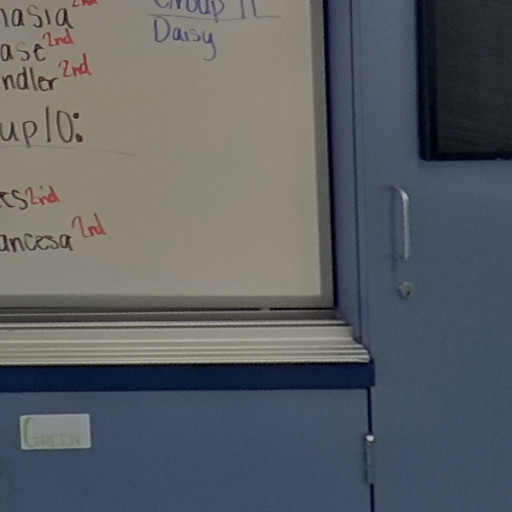 nasia 2nd
ase 2nd
ndler 2nd
up 10:
es 2nd
ancesa 2nd
Group 11
Daisy
GREEN